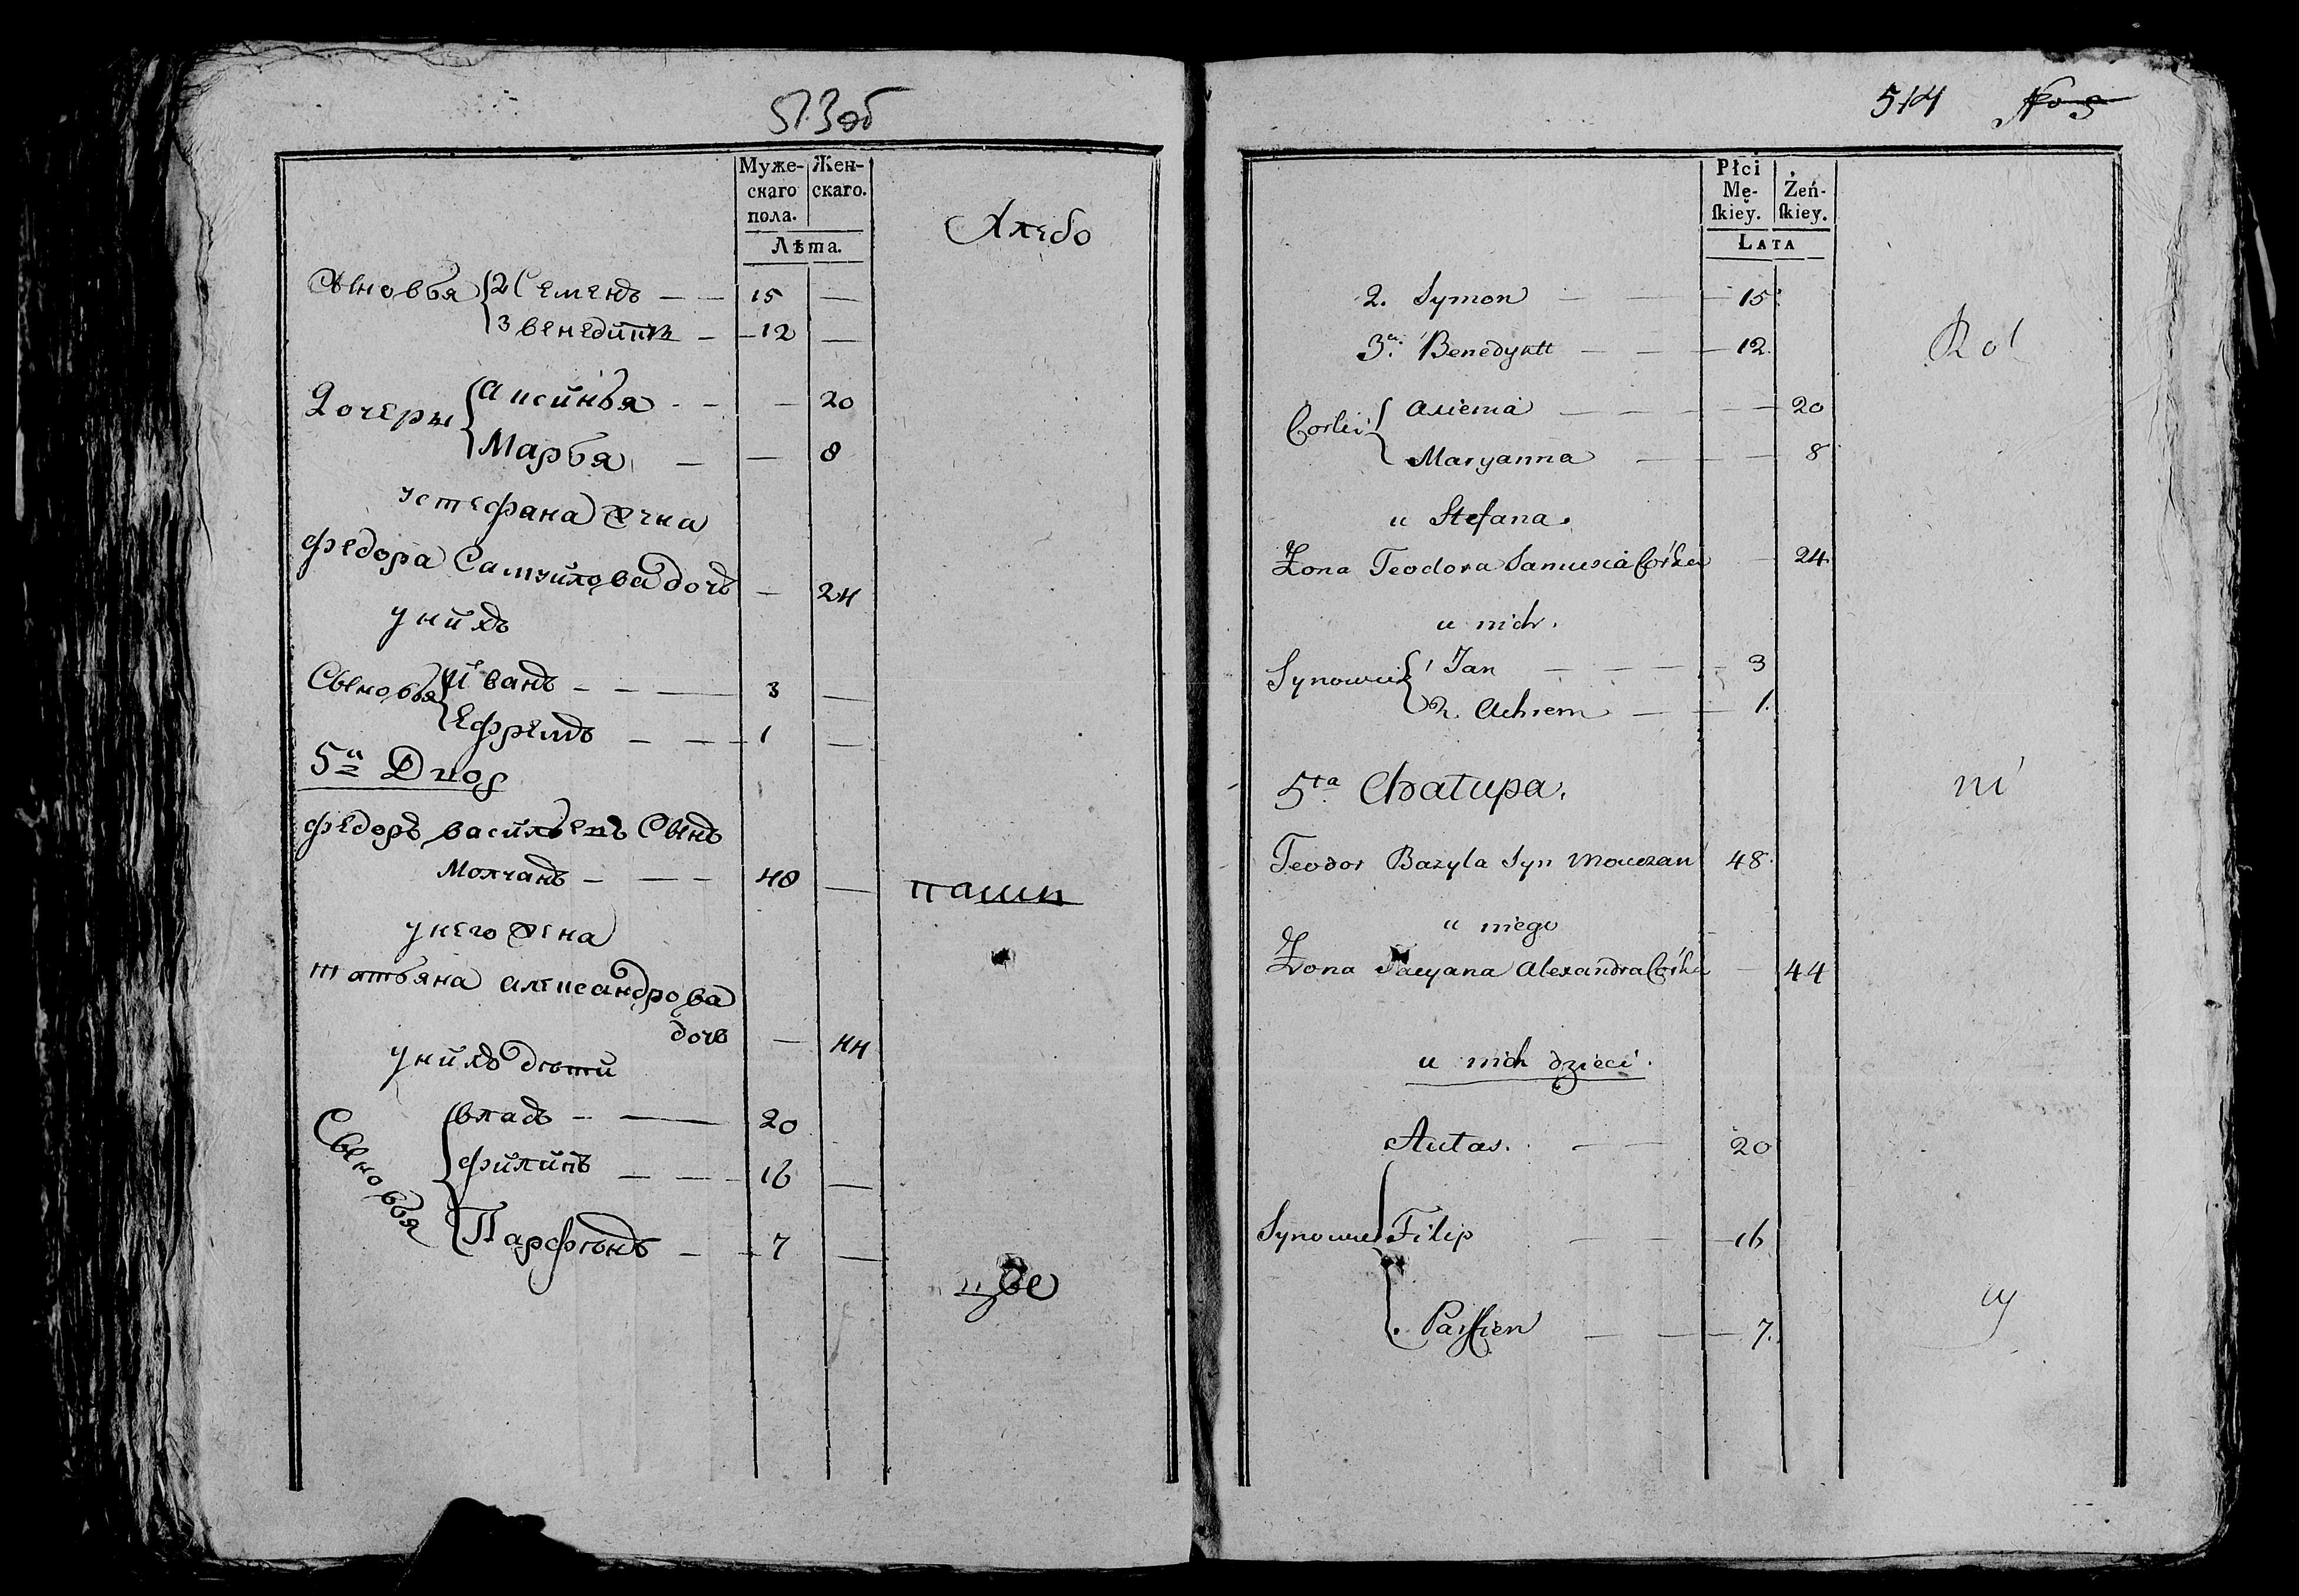 513об
Муже- Жен-
скаго скаго.
пола.
Лѣта.
Хлебо
Сыновья 2 Семенъ — — 15 —
3 Венедиктъ — 12 —
Дочеры Аксинья — — 20
Марья — — 8
у стефана жена
федора Самуйлова дочь — 24
у нихъ
Сыновья Иванъ — — 3 —
Ефремъ — — 1 —
5й Двор
федоръ васильевъ Сынъ
Молчанъ — — 48 —
паши
у него жена
татьяна александрова
дочь — 44
у нихъ дѣти
Сыновья владъ — — 20
филипъ — — 16 —
Парфѣнъ — 7 —
цы
514 No 3
Płci
Mę- Żeń-
skiey. skiey.
LATA
2. Symon — — 15
3. Benedyktt — — 12.
Rol
Corki Axiema — — — 20
Maryanna — — 8
u Stefana.
Żona Teodora Samusia Córka — 24
u nich.
Synowie 1 Jan — — — 3
2. Achrem — — 1.
5ta Chatupa.
ni
Teodor Bazyla Syn Mouczan 48.
u niego
Żona Tacyana Alexandra Córka — 44
u nich dzieci.
Autas. — — 20
Synowie Filip — — 16
cy
Parfien — — 7.